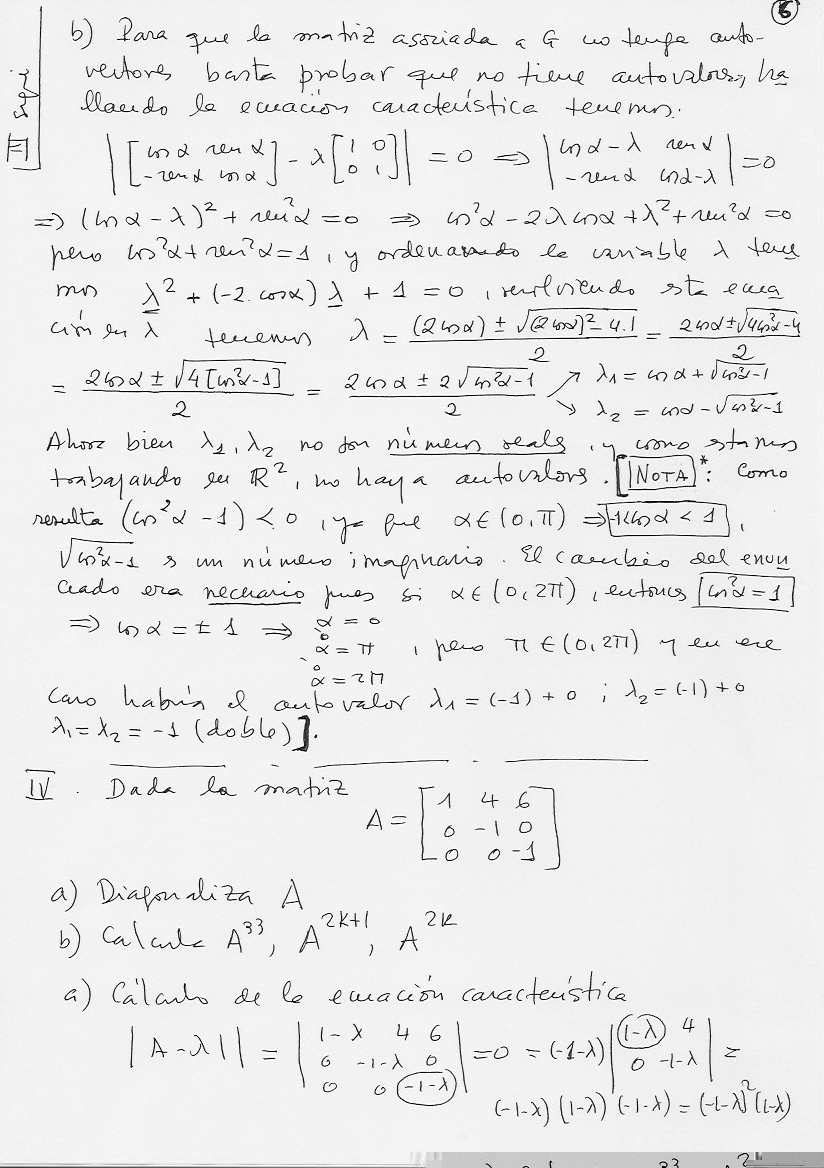 6
b) Para que la matriz asoziada a G no tenga auto-
vectores basta probar que no tiene autovalores, ha
llando la ecuación característica tenemos:
|[cos α sen α; -sen α cos α] - λ[1 0; 0 1]| = 0 ⇒ |cos α - λ sen α; -sen α cos α - λ| = 0
⇒ (cos α - λ)² + sen²α = 0 ⇒ cos²α - 2λ cos α + λ² + sen²α = 0
pero cos²α + sen²α = 1, y ordenando la variable λ tene
mos λ² + (-2·cos α) λ + 1 = 0, resolviendo esta ecua
ción en λ tenemos λ = ((2cos α) ± √((2cos α)² - 4·1))/2 = (2cos α ± √(4cos²α - 4))/2
= (2cos α ± √(4[cos²α - 1]))/2 = (2cos α ± 2√(cos²α - 1))/2 ↗ λ₁ = cos α + √(cos²α - 1)
↘ λ₂ = cos α - √(cos²α - 1)
Ahora bien λ₁, λ₂ no son números reales, y como estamos
trabajando en R², no hay a autovalores. [NOTA*: Como
resulta (cos²α - 1) < 0, ya que α ∈ (0, π) ⇒ -1 < cos α < 1,
√(cos²α - 1) es un número imaginario. El cambio del enun
ciado era necesario pues si α ∈ (0, 2π), entonces cos²α = 1
⇒ cos α = ± 1 ⇒ α = 0
ó α = π, pero π ∈ (0, 2π) y en ese
ó α = 2π
caso habría el autovalor λ₁ = (-1) + 0 ; λ₂ = (-1) + 0
λ₁ = λ₂ = -1 (doble)].
IV. Dada la matriz
A = [1 4 6; 0 -1 0; 0 0 -1]
a) Diagonaliza A
b) Calcula A³³, A²ᵏ⁺¹, A²ᵏ
a) Cálculo de la ecuación característica
|A - λI| = |1-λ 4 6; 0 -1-λ 0; 0 0 -1-λ| = 0 = (-1-λ) |1-λ 4; 0 -1-λ| =
(-1-λ)(1-λ)(-1-λ) = (-1-λ)²(1-λ)